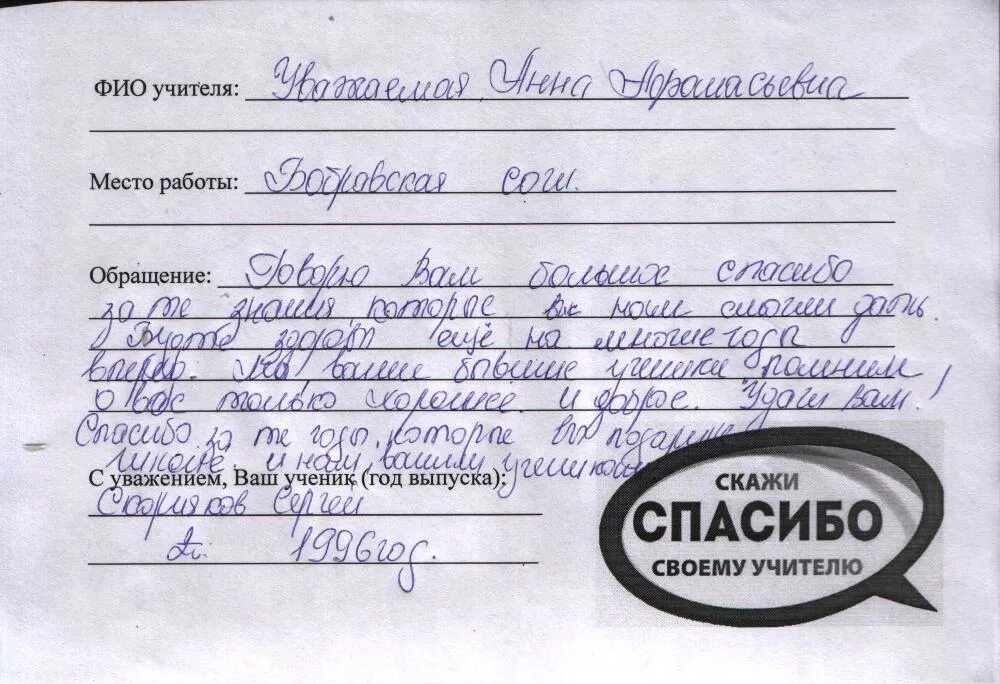 ФИО учителя: Уважаемая Анна Афанасьевна
Место работы: Бобравская сош.
Обращение: Говорю Вам большое спасибо
за те знания, которые вы нам смогли дать.
Будте здоровы ещё на многие годы
вперёд. Мы ваши бывшие ученики помним
о вас только хорошее и доброе. Удачи Вам!
Спасибо за те годы, которые вы подарили
школе и нам, вашим ученикам
С уважением, Ваш ученик (год выпуска):
Скорняков Сергей
1996 год.
СКАЖИ
СПАСИБО
СВОЕМУ УЧИТЕЛЮ